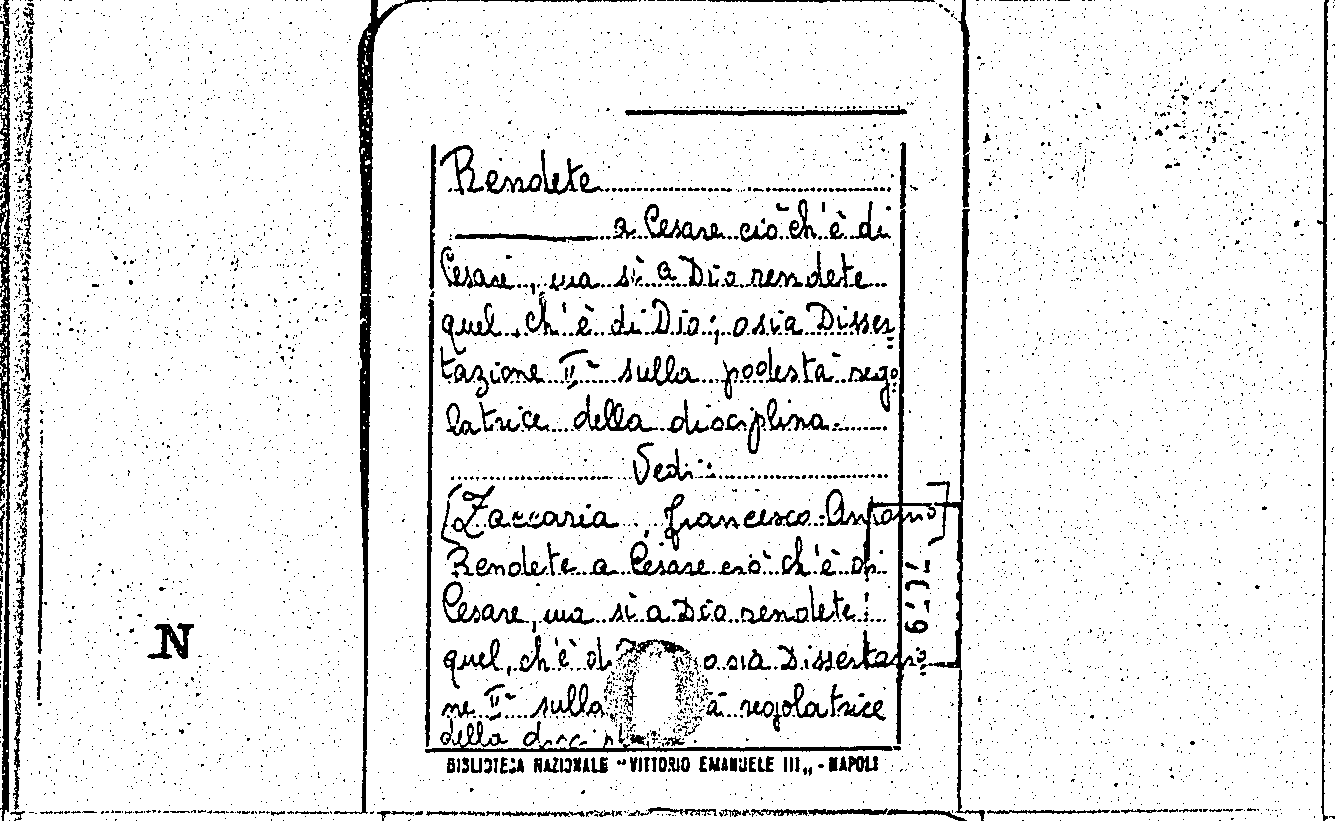 Rendete
a Cesare ciò ch'è di
Cesare, ma sì a Dio rendete
quel ch'è di Dio; osia Disser
tazione IIª sulla podestà rego
latrice della disciplina.
Vedi:
[Zaccaria, Francesco Antonio]
Rendete a Cesare ciò ch'è di
Cesare, ma sì a Dio rendete
quel, ch'è di osia Dissertazio
ne IIª sulla à regolatrice
della
BIBLIOTECA NAZIONALE "VITTORIO EMANUELE III„ - NAPOLI
N